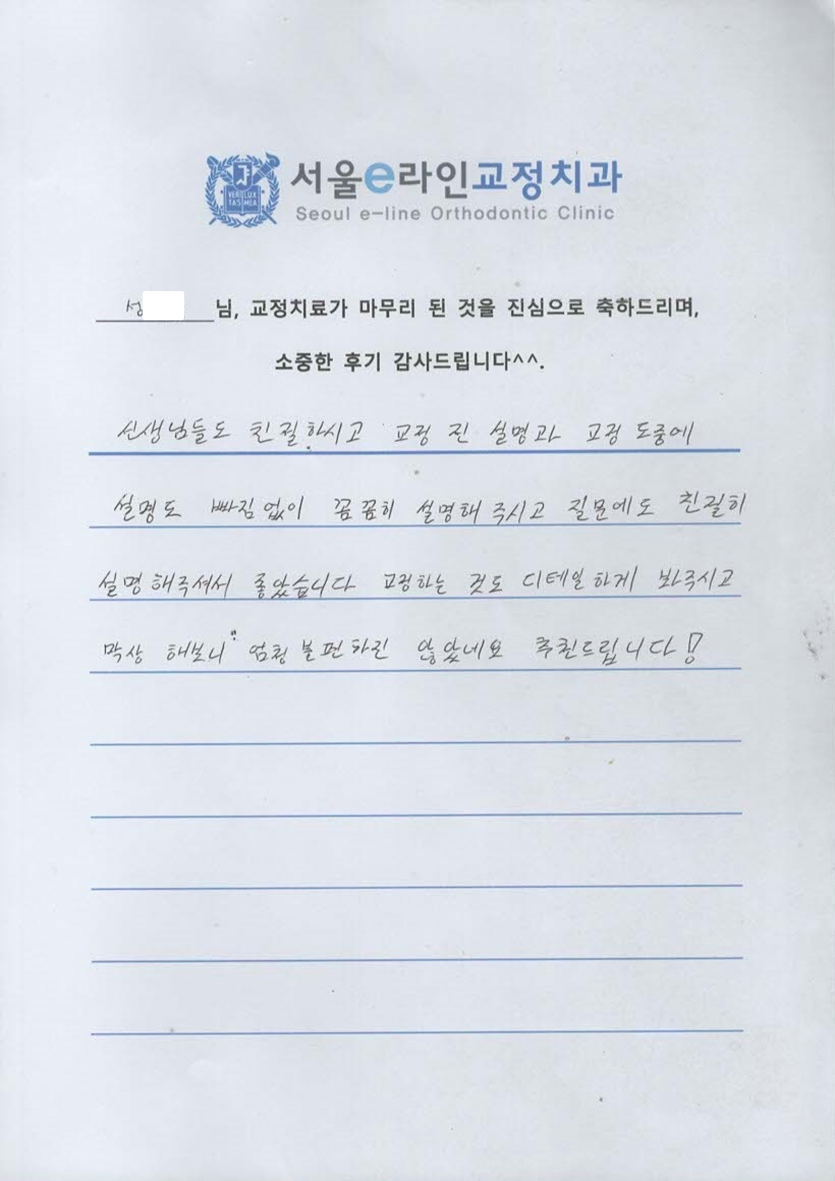 VERI LUX
TAS MEA
서울e라인교정치과
Seoul e-line Orthodontic Clinic
성 님, 교정치료가 마무리 된 것을 진심으로 축하드리며,
소중한 후기 감사드립니다^^.
선생님들도 친절하시고 교정 진 설명과 교정 도중에
설명도 빠짐없이 꼼꼼히 설명해 주시고 질문에도 친절히
설명해주셔서 좋았습니다 교정하는 것도 디테일하게 봐주시고
막상 해보니 엄청 불편하진 않았네요 추천드립니다!